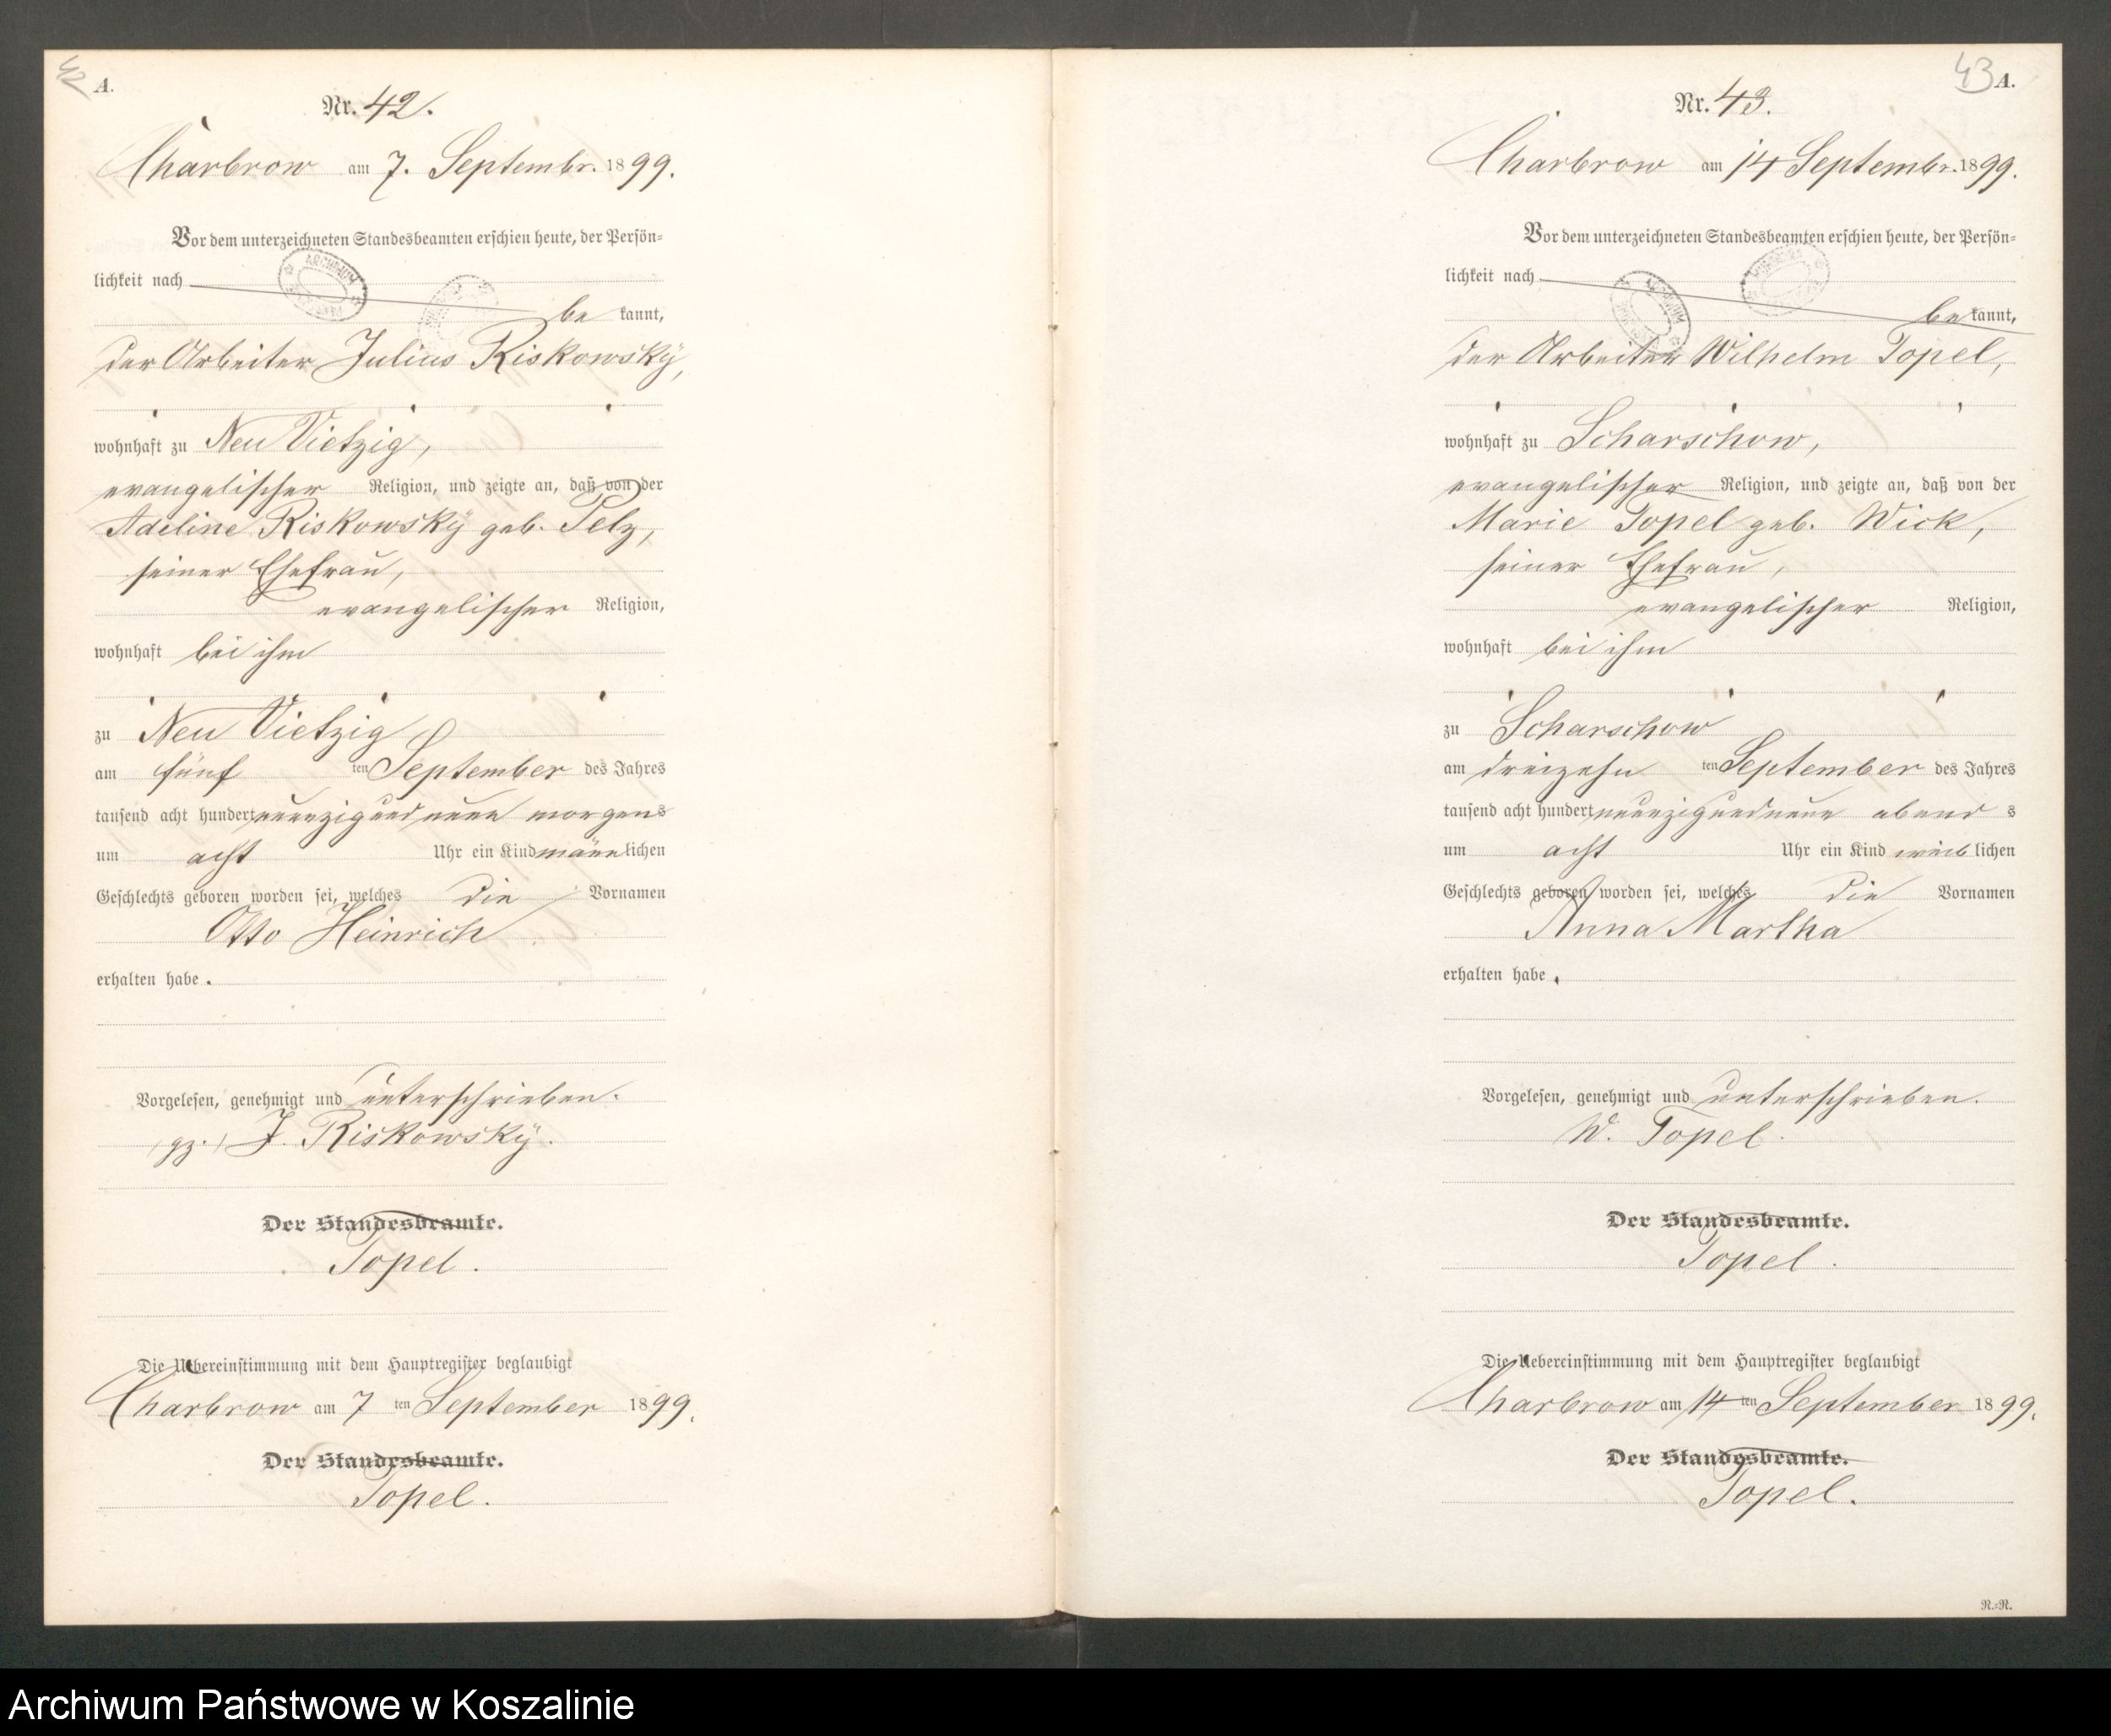 42
A.
Nr. 42.
Charbrow am 7. Septembr. 1899.
Vor dem unterzeichneten Standesbeamten erschien heute, der Persön-
lichkeit nach
be kannt,
der Arbeiter Julius Riskowsky,
wohnhaft zu Neu Vietzig,
evangelischer Religion, und zeigte an, daß von der
Adeline Riskowsky geb. Pelz,
seiner Ehefrau,
evangelischer Religion,
wohnhaft bei ihm
zu Neu Vietzig
am fünf ten September des Jahres
tausend acht hundert neunzig und neun morgens
um acht Uhr ein Kind männlichen
Geschlechts geboren worden sei, welches die Vornamen
Otto Heinrich
erhalten habe.
Vorgelesen, genehmigt und unterschrieben.
(gz.) J. Riskowsky.
Der Standesbeamte.
Topel.
Die Uebereinstimmung mit dem Hauptregister beglaubigt
Charbrow am 7 ten September 1899.
Der Standesbeamte.
Topel.
43
A.
Nr. 43.
Charbrow am 14 Septembr. 1899.
Vor dem unterzeichneten Standesbeamten erschien heute, der Persön-
lichkeit nach
be kannt,
der Arbeiter Wilhelm Topel,
wohnhaft zu Scharschow,
evangelischer Religion, und zeigte an, daß von der
Marie Topel geb. Wick,
seiner Ehefrau,
evangelischer Religion,
wohnhaft bei ihm
zu Scharschow
am dreizehn ten September des Jahres
tausend acht hundert neunzig und neun abend s
um acht Uhr ein Kind weiblichen
Geschlechts geboren worden sei, welches die Vornamen
Anna Martha
erhalten habe.
Vorgelesen, genehmigt und unterschrieben.
W. Topel.
Der Standesbeamte.
Topel.
Die Uebereinstimmung mit dem Hauptregister beglaubigt
Charbrow am 14 ten September 1899.
Der Standesbeamte.
Topel.
R.-R.
Archiwum Państwowe w Koszalinie